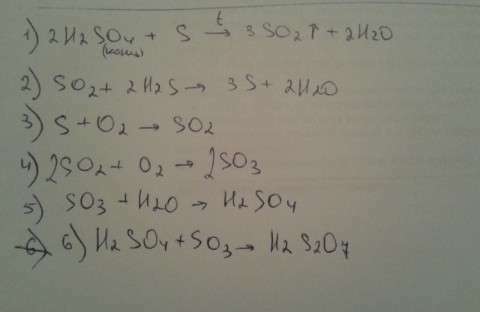 1) 2H2SO4 + S t→ 3SO2↑ + 2H2O
(конц)
2) SO2 + 2H2S → 3S + 2H2O
3) S + O2 → SO2
4) 2SO2 + O2 → 2SO3
5) SO3 + H2O → H2SO4
6) H2SO4 + SO3 → H2S2O7